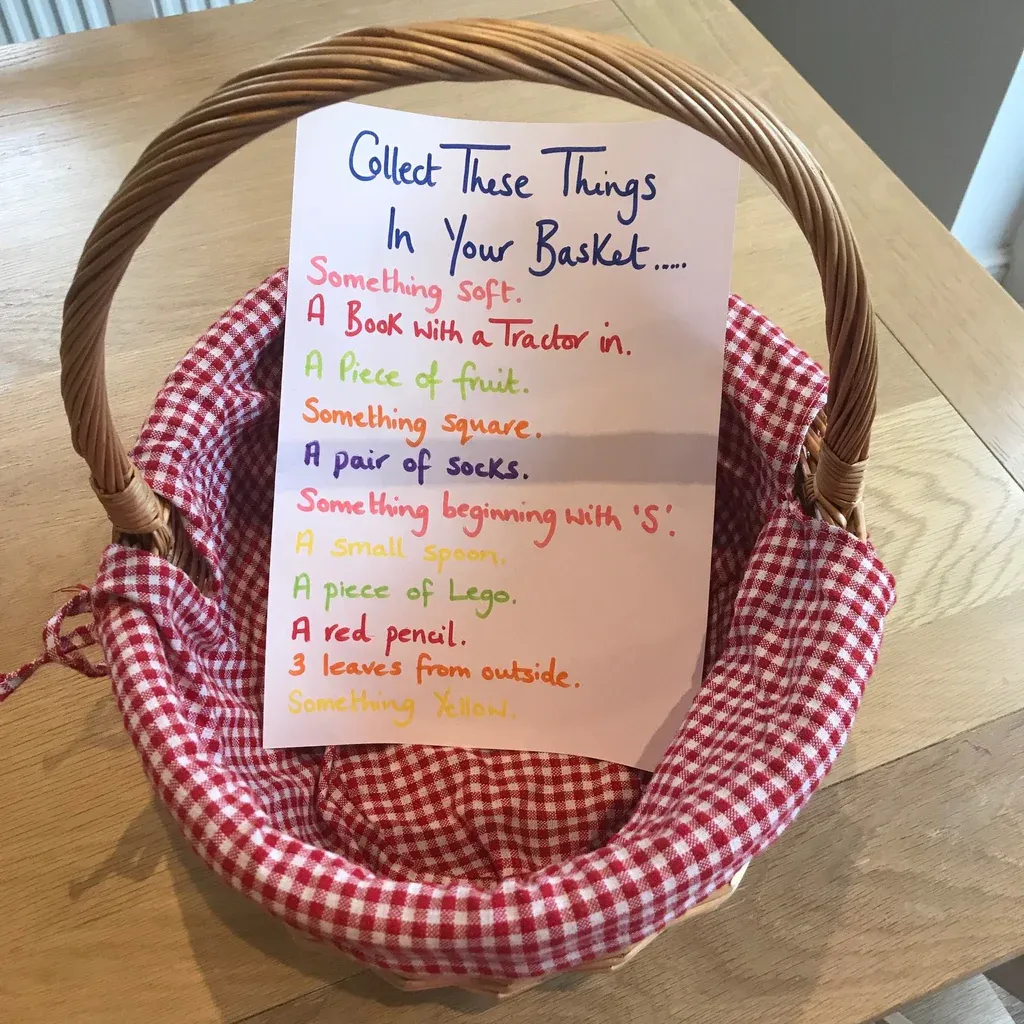 Collect These Things
In Your Basket.....
Something soft.
A Book with a Tractor in.
A Piece of fruit.
Something square.
A pair of socks.
Something beginning with 'S'.
A small spoon.
A piece of Lego.
A red pencil.
3 leaves from outside.
Something Yellow.